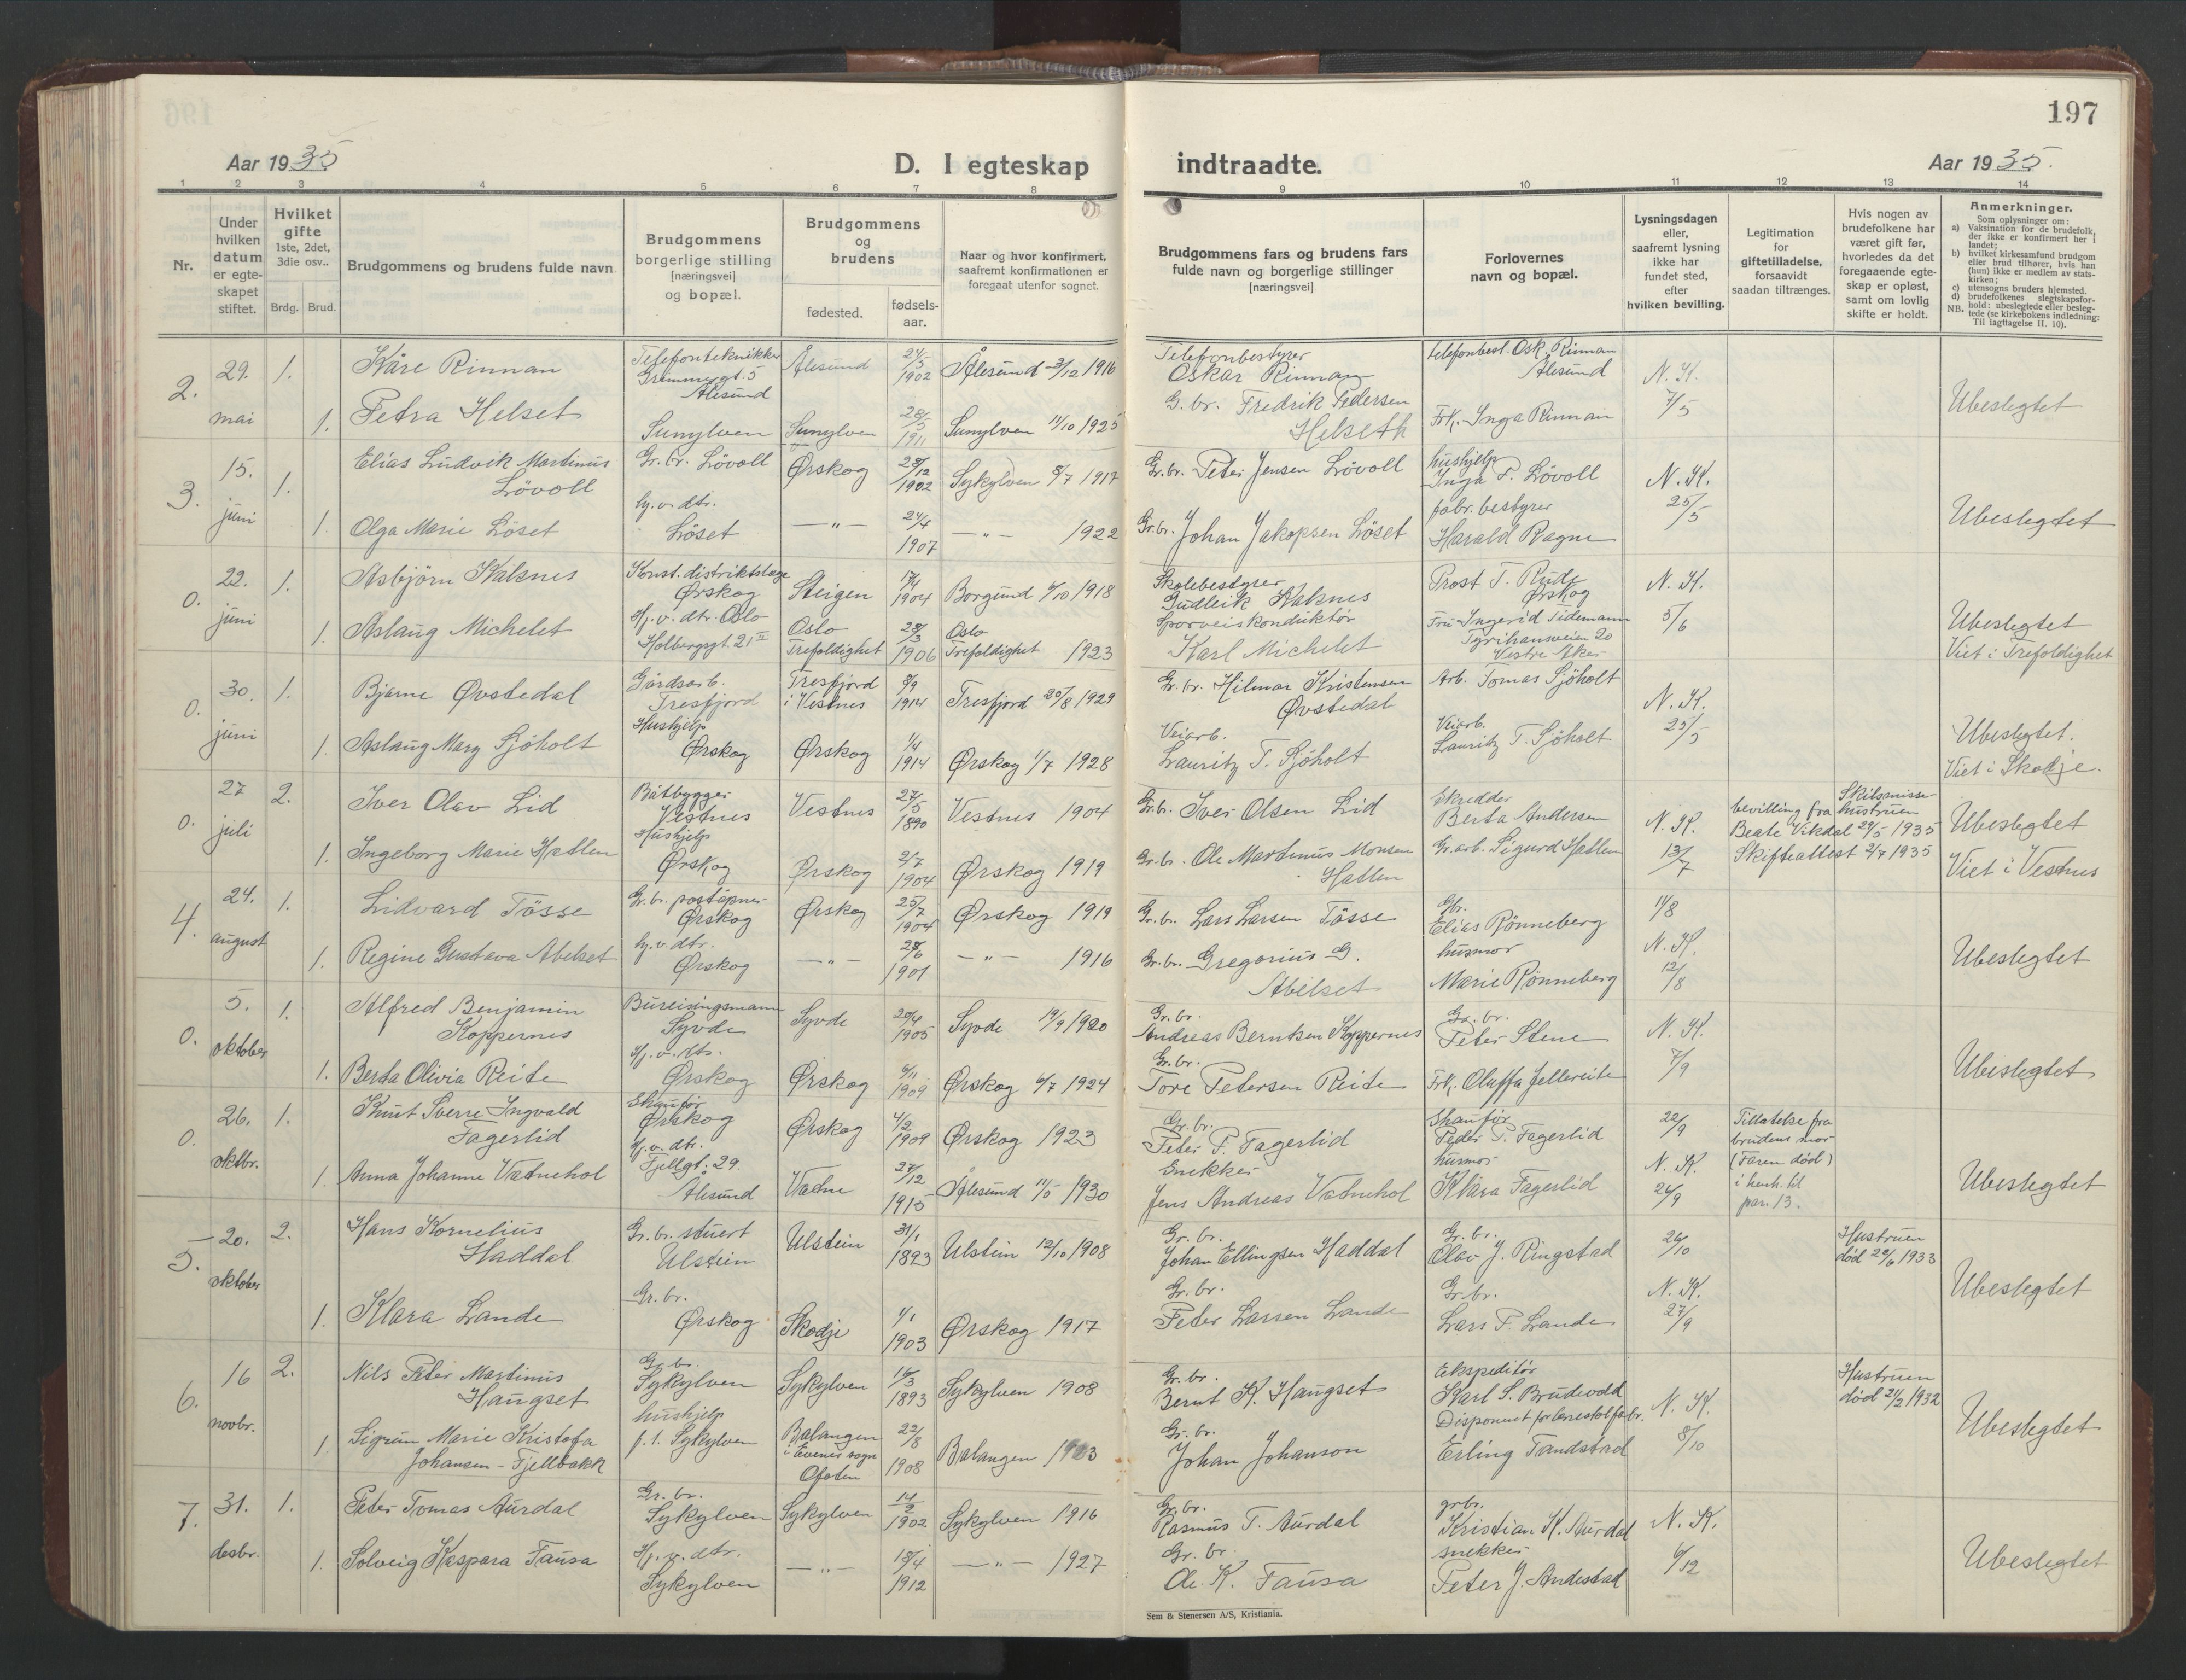 197
Aar 1935
D. I egteskap indtraadte.
Aar 1935.
1 2 3 4 5 6 7 8 9 10 11 12 13 14
Nr.
Under hvilken datum er egte-skapet stiftet.
Hvilket gifte 1ste, 2det, 3die osv..
Brdg. Brud.
Brudgommens og brudens fulde navn
Brudgommens borgerlige stilling [næringsvei] og bopæl.
Brudgommens og brudens
fødested.
fødsels-aar.
Naar og hvor konfirmert, saafremt konfirmationen er foregaat utenfor sognet.
Brudgommens fars og brudens fars fulde navn og borgerlige stillinger [næringsvei]
Forlovernes navn og bopæl.
Lysningsdagen eller, saafremt lysning ikke har fundet sted, efter hvilken bevilling.
Legitimation for giftetilladelse, forsaavidt saadan tiltrænges.
Hvis nogen av brudefolkene har været gift før, hvorledes da det foregaaende egte-skap er opløst, samt om lovlig skifte er holdt.
Anmerkninger.
Som oplysninger om:
a) Vaksination for de brudefolk, der ikke er konfirmert her i landet;
b) hvilket kirkesamfund brudgom eller brud tilhører, hvis han (hun) ikke er medlem av stats-kirken;
c) utensogns bruders hjemsted.
d) brudefolkenes slegtskapsfor-hold: ubeslegtede eller besleg-tede (se kirkebokens indledning:
NB. Til iagttagelse II. 10).
2. 29. mai 1. Kåre Rinnan Telefontekniker Grimmergt. 5 Ålesund Ålesund 24/3 1902 Ålesund 3/12 1916 Telefonbestyrer Oskar Rinnan Telefonbest. Osk. Rinnan Ålesund N. K. 7/5
1. Petra Helset Sunylven Sunylven 28/5 1911 Sunylven 11/10 1925 G. br. Fredrik Pedersen Helseth Frk. Inga Rinnan Ubeslegtet
3. 15. juni 1. Elias Ludvik Martinus Lövoll Gr. br. Lövoll Ørskog 28/12 1902 Sykylven 8/7 1917 Gr. br. Peter Jensen Lövoll hushjelp Inga P. Lövoll N. K. 25/5
1. Olga Marie Löset hj. v. dtr. Löset —"— 24/4 1907 —"— 1922 Gr. br. Johan Jakopsen Löset fabr. bestyrer Harald Ragne Ubeslegtet
0. 22. juni 1. Asbjörn Kaksnes Konst. distriktslæge Ørskog Steigen 17/4 1904 Borgund 6/10 1918 Skolebestyrer Gudleik Kaknes Prost T. Rude Ørskog N. K. 5/6
1. Aslaug Michelet Hj. v. dtr. Oslo Holbergsgt. 21 II Oslo Trefoldighet 28/3 1906 Oslo Trefoldighet 1923 Sporveiskonduktør Karl Michelet Fru Ingerid Tidemann Tyrihansveien 20 Vestre Aker Ubeslegtet Viet i Trefoldighet
0. 30. juni 1. Bjarne Øvstedal Gårdsarb. Tresfjord Tresfjord i Vestnes 8/9 1914 Tresfjord 20/8 1929 Gr. br. Hilmar Kristensen Øvstedal Arb. Tomas Sjöholt N. K. 25/5
1. Aslaug Mary Sjöholt Hushjelp Ørskog Ørskog 1/4 1914 Ørskog 1/7 1928 Veiarb. Lauritz T. Sjöholt Veiarb. Lauritz T. Sjöholt Ubeslegtet. Viet i Skodje.
0. 27 juli 2. Iver Olav Lid Båtbygger Vestnes Vestnes 27/5 1890 Vestnes 1904 Gr. br. Iver Olsen Lid Skredder Berta Andersen N. K. 13/7 Skilsmisse bevilling fra hustruen Beate Vikdal 29/5 1935 Skifteattest 2/7 1935 Ubeslegtet
1. Ingeborg Marie Hatlen Hushjelp Ørskog Ørskog 2/7 1904 Ørskog 1919 Gr. br. Ole Martinus Monsen Hatlen Gr. arb. Sigurd Hatlen Viet i Vestnes
4. 24. august 1. Lidvard Tösse Gr. br. poståpner Ørskog Ørskog 25/7 1904 Ørskog 1919 Gr. br. Lars Larsen Tösse Gbr. Elias Rønneberg 11/8 N. K. 12/8
1. Regine Gustava Abelset hj. v. dtr. Ørskog —"— 28/6 1901 —"— 1916 Gr. br. Gregorius G. Abelset husmor Marie Rønneberg Ubeslegtet
0. 5. oktober 1. Alfred Benjamin Koppernes Bureisingsmann Syvde Syvde 20/4 1905 Syvde 19/9 1920 Gr. br. Andreas Berntsen Koppernes Ga. br. Peter Stene N. K. 7/9
1. Berta Olivia Reite Hj. v. dtr. Ørskog Ørskog 6/11 1909 Ørskog 6/7 1924 Gr. br. Tore Petersen Reite Frk. Oluffa Jellereite Ubeslegtet
0. 26. oktbr. 1. Knut Sverre Ingvald Fagerlid Skaufør Ørskog Ørskog 4/2 1909 Ørskog 1923 Gr. br. Peter P. Fagerlid Skaufør Peder P. Fagerlid 22/9 N. K. 26/9 Tillatelse fra brudens mor (Faren død) i henh. til par. 13.
1. Anna Johanne Vatnehol Hj. v. dtr. Fjellgt. 29. Ålesund Vatne 27/12 1915 Ålesund 11/5 1930 Snekker Jens Andreas Vatnehol husmor Klara Fagerlid Ubeslegtet
5. 20. oktober 2. Hans Kornelius Haddal Gr. br. stuert Ulstein Ulstein 31/1 1893 Ulstein 12/10 1908 Gr. br. Johan Ellingsen Haddal Gr. br. Olav J. Ringstad 26/10 N. K. 27/9 Hustruen død 22/6 1933
1. Klara Lande Gr. br. Ørskog Skodje 1/1 1903 Ørskog 1917 Gr. br. Peter Larsen Lande Gr. br. Lars P. Lande Ubeslegtet
6. 16 novbr. 2. Nils Peter Martinus Haugset Gr. br. Sykylven Sykylven 16/3 1893 Sykylven 1908 Gr. br. Bernt K. Haugset Ekspeditør Karl S. Brudevold N. K. 8/10 Hustruen død 21/2 1932
1. Sigrun Marie Kristofa Johansen - Fjellbakk hushjelp f. t. Sykylven Balangen i Evenes sogn Ofoten 22/8 1908 Balangen 1923 Gr. br. Johan Johanson Disponent for lenestolfabr. Erling Tandstad Ubeslegtet
7. 31. desbr. 1. Peter Tomas Aurdal Gr. br. Sykylven Sykylven 14/2 1902 Sykylven 1916 Gr. br. Rasmus T. Aurdal grbr. Kristian K. Aurdal N. K. 6/12
1. Solveig Kaspara Fausa Hj. v. dtr. Sykylven —"— 18/4 1912 —"— 1927 Gr. br. Ole K. Fausa snekker Peter J. Andestad Ubeslegtet
Sem & Stenersen A/S, Kristiania.